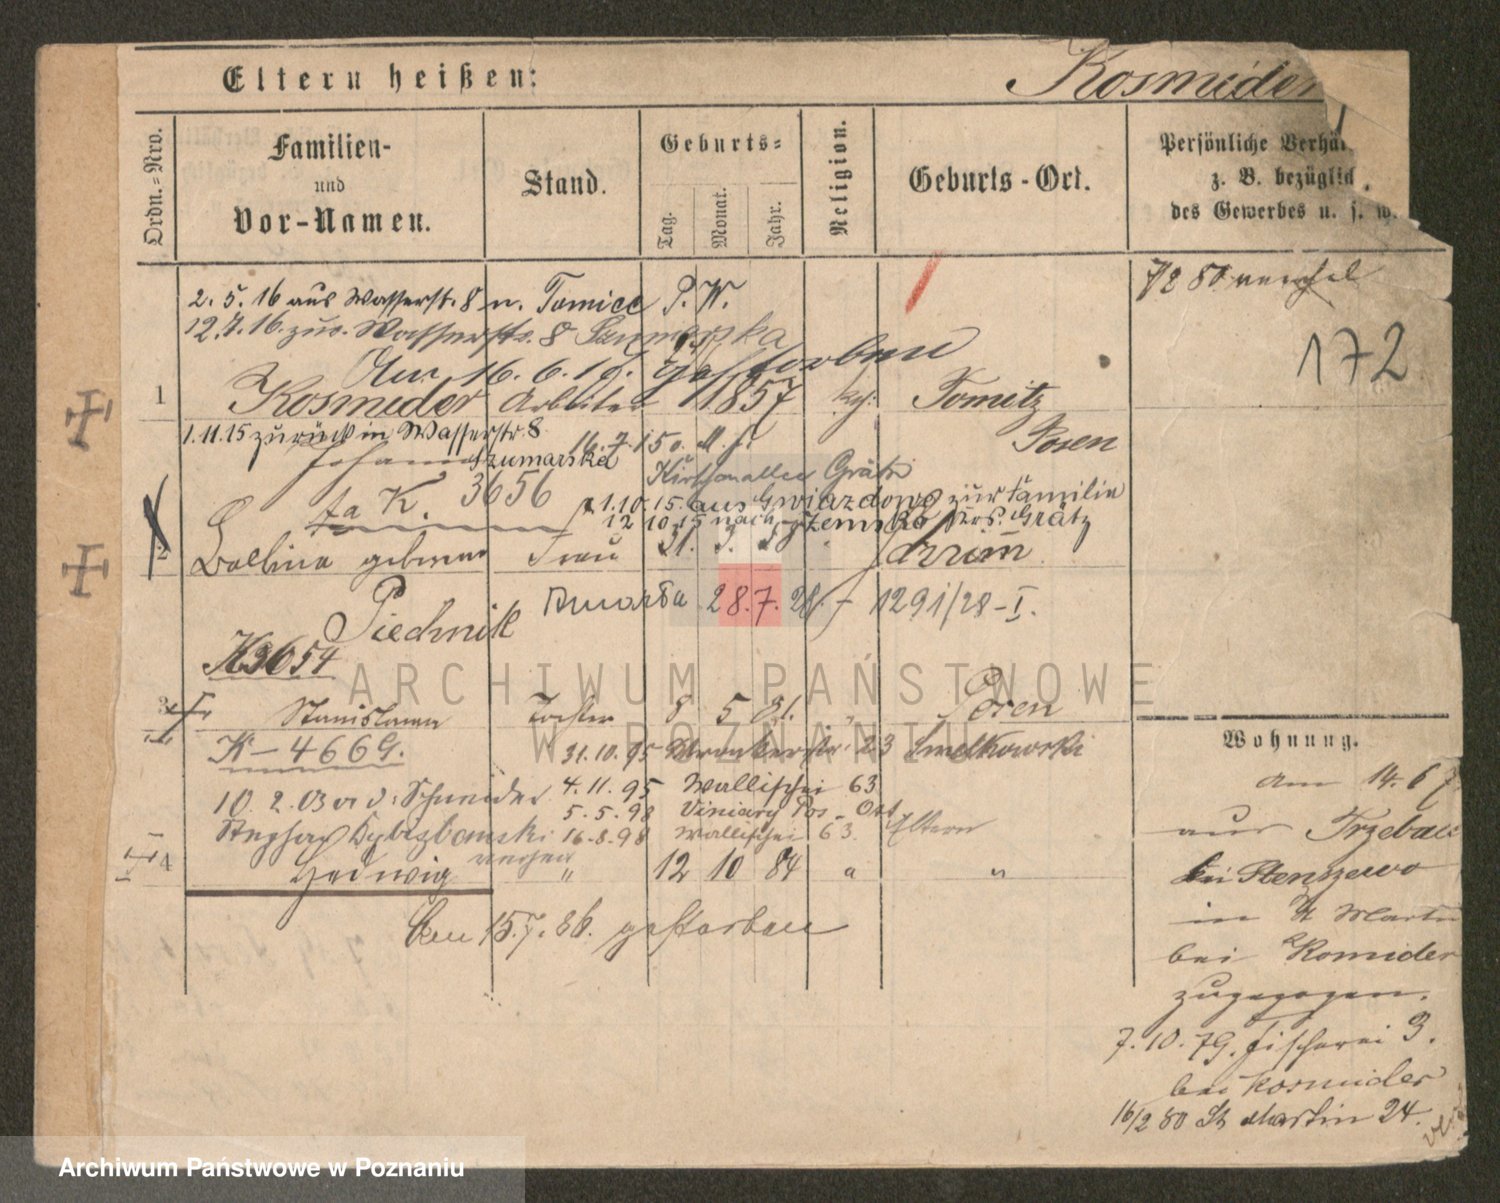 Eltern heißen:
Kosmider
Ordn.-Nro.
Familien-
und
Vor-Namen.
Stand.
Geburts-
Tag.
Monat.
Jahr.
Religion.
Geburts-Ort.
Persönliche Verhä
z. B. bezüglich
des Gewerbes u. s. w.
2. 5. 16 aus Wasserstr. 8 n. Tomice P. W.
12.7.16. zur. Wasserstr. 8 Szumarska
Am 16. 6. 19. gestorben
172
1 Kosmider Arbeiter 1857 kath. Tomitz
1.11.15 zurück in Wasserstr. 8
Posen
Johann Szumarska
Grätz
ta K. 3656
1.10.15. aus Gwiazdowo zur Familie
12 10 15 nach Krs. Grätz
2 geborene Frau 21. 3. Schrimm
Piechnik
zmarła 28.7.28. - 1291/28-I.
K3654
3 Stanislawa Tochter 8 5 81. " Posen
K-4669.
31.10.95 23 Smelkowski
10. 2. 03 v. d. Schneider
4.11.95 Wallischei 63
5.5.98 Viniary Pos-Ost
Stephan
16.8.98 Wallischei 63. Eltern
4 Hedwig " 12 10 84 " "
Am 15.7.86. gestorben
Wohnung.
am 14. 6 7
aus Trzebaw
bei Stenszewo
in St Martin
bei Komider
zugezogen.
7. 10. 79. Fischerei 3.
bei Kosmider
16/2 80 St Martin 24.
ARCHIWUM PAŃSTWOWE
W POZNANIU
Archiwum Państwowe w Poznaniu